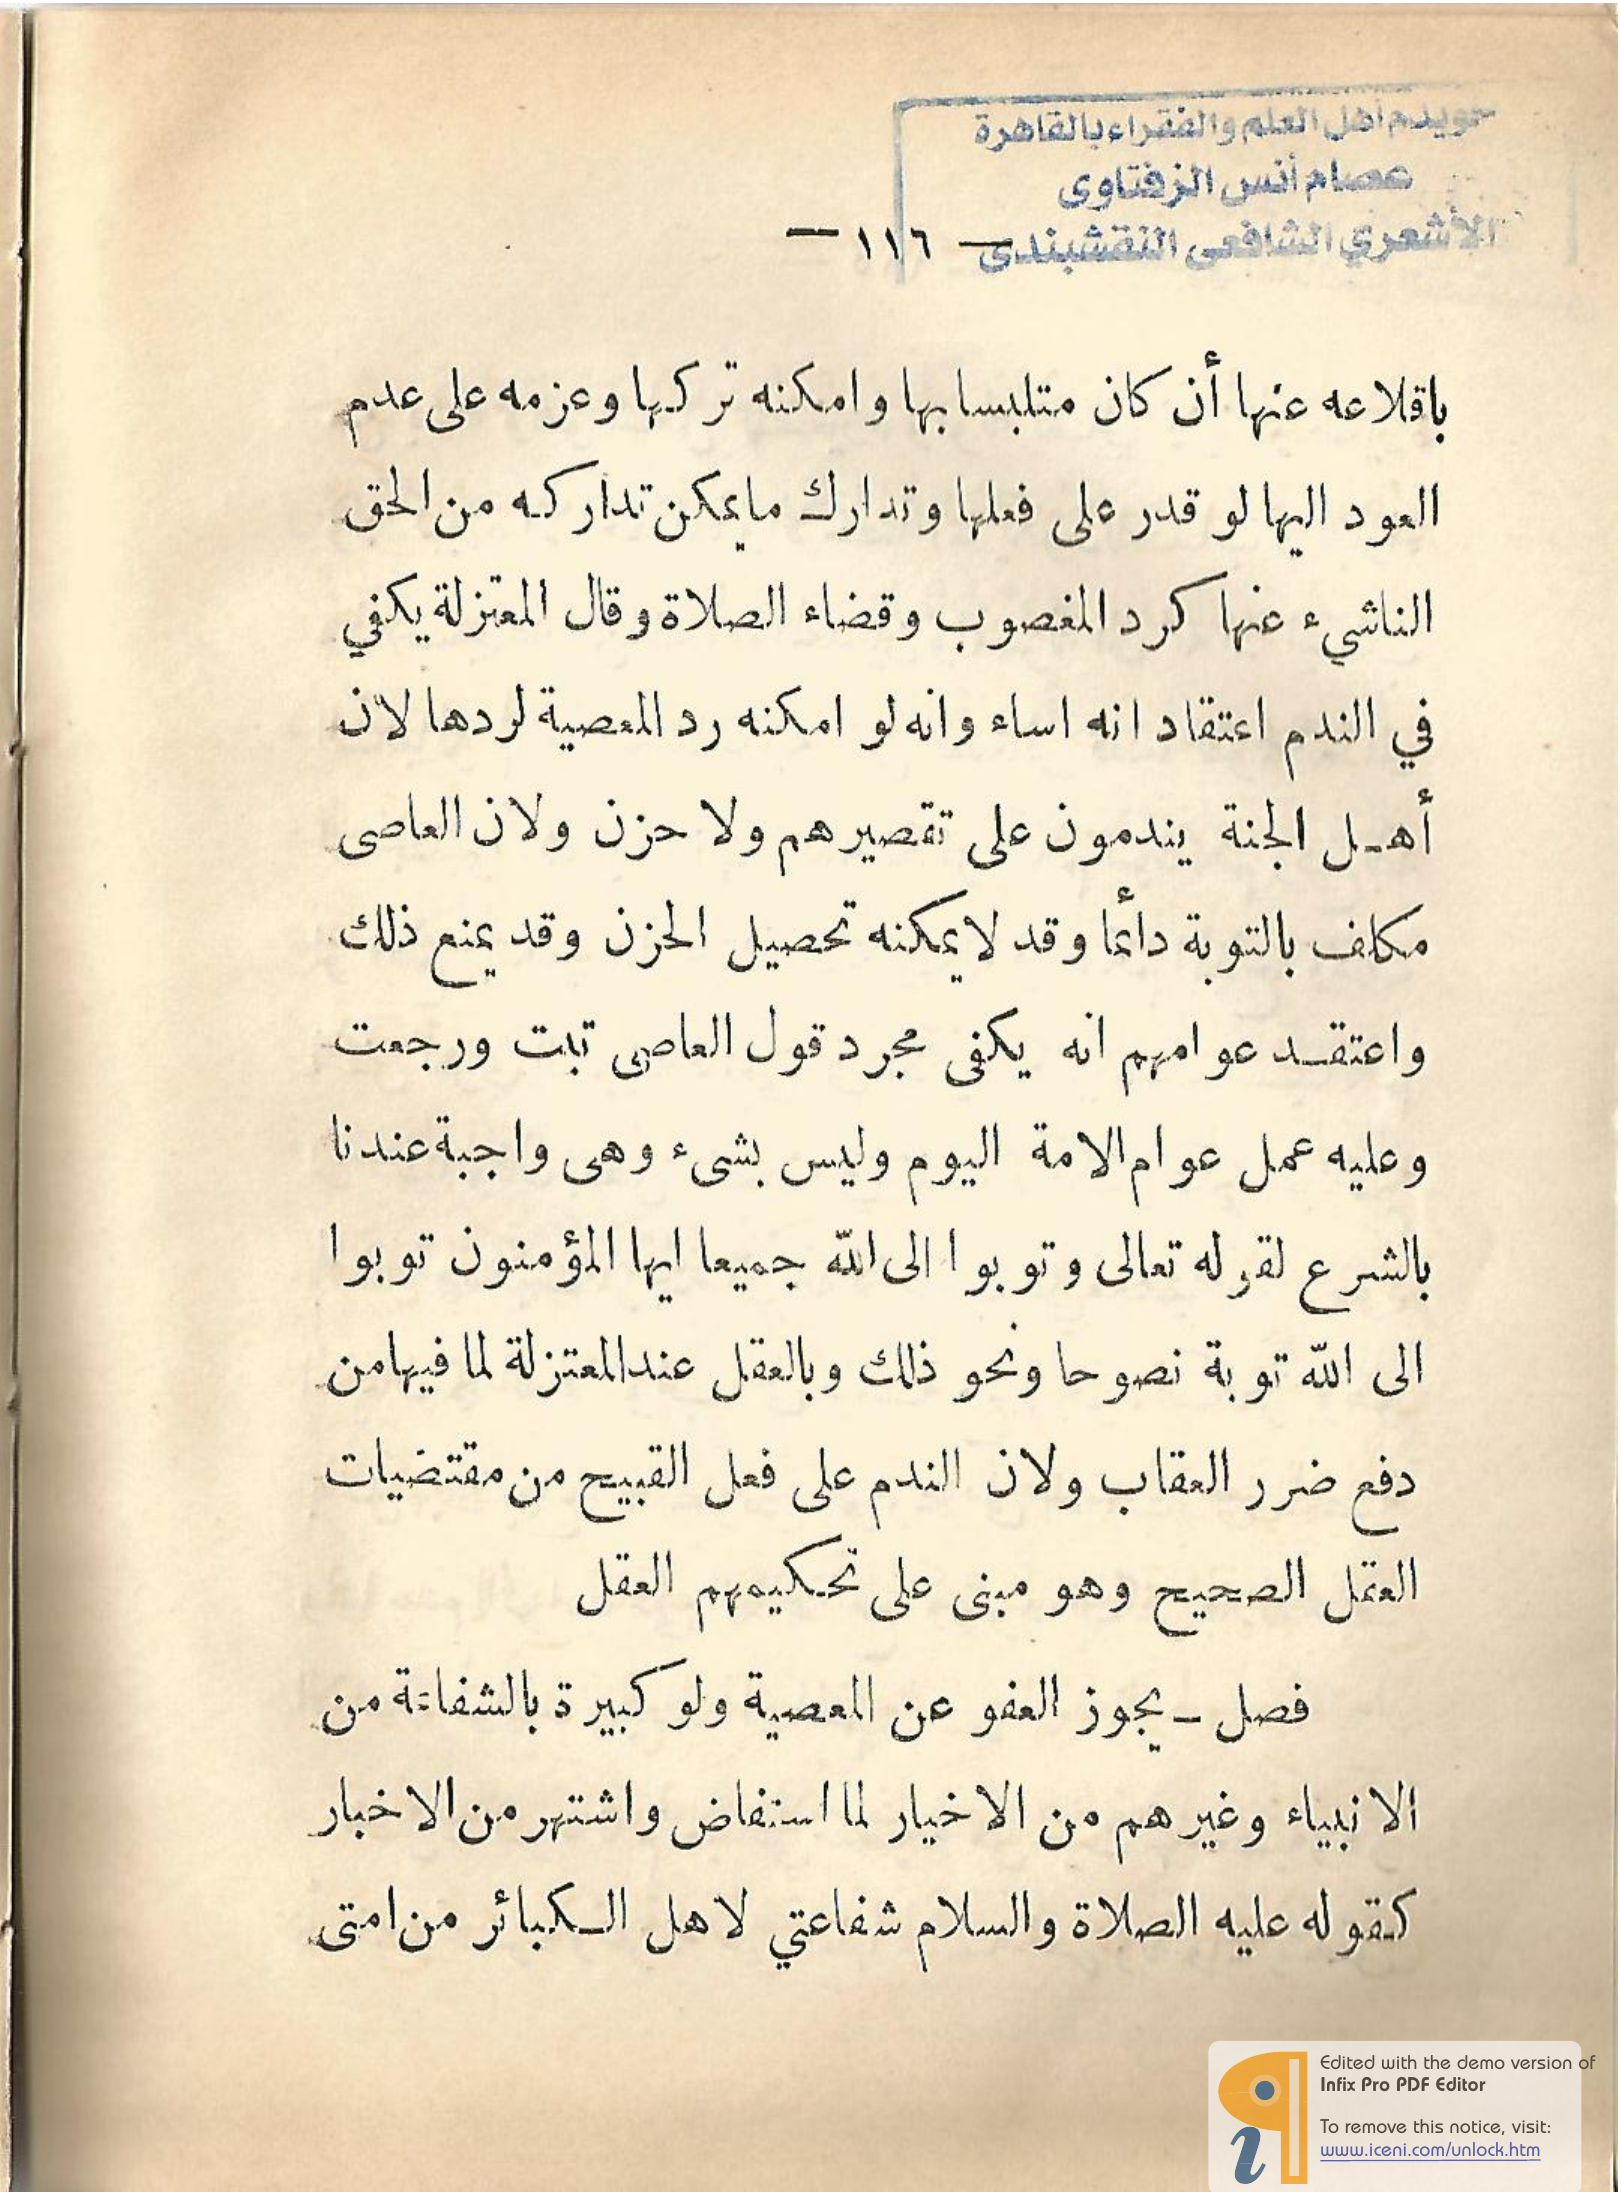 خويدم أهل العلم والفقراء بالقاهرة
عصام أنس الزفتاوى
الأشعري الشافعى النقشبندى
— ١١٦ —
باقلاعه عنها أن كان متلبسا بها وامكنه تركها وعزمه على عدم
العود اليها لو قدر على فعلها وتدارك ما يمكن تداركه من الحق
الناشيء عنها كرد المغصوب وقضاء الصلاة وقال المعتزلة يكفي
في الندم اعتقاد انه اساء وانه لو امكنه رد المعصية لردها لان
أهـل الجنة يندمون على تقصيرهم ولا حزن ولان العاصى
مكلف بالتوبة دأئما وقد لا يمكنه تحصيل الحزن وقد يمنع ذلك
واعتقـد عوامهم انه يكفى مجرد قول العاصى تبت ورجعت
وعليه عمل عوام الامة اليوم وليس بشىء وهى واجبة عندنا
بالشرع لقوله تعالى وتوبوا الى الله جميعا ايها المؤمنون توبوا
الى الله توبة نصوحا ونحو ذلك وبالعقل عند المعتزلة لما فيها من
دفع ضرر العقاب ولان الندم على فعل القبيح من مقتضيات
العقل الصحيح وهو مبنى على تحكيمهم العقل
فصل – يجوز العفو عن المعصية ولو كبيرة بالشفاعة من
الانبياء وغيرهم من الاخيار لما استفاض واشتهر من الاخبار
كقوله عليه الصلاة والسلام شفاعتي لاهل الـكبائر من امتى
Edited with the demo version of
Infix Pro PDF Editor
To remove this notice, visit:
www.iceni.com/unlock.htm